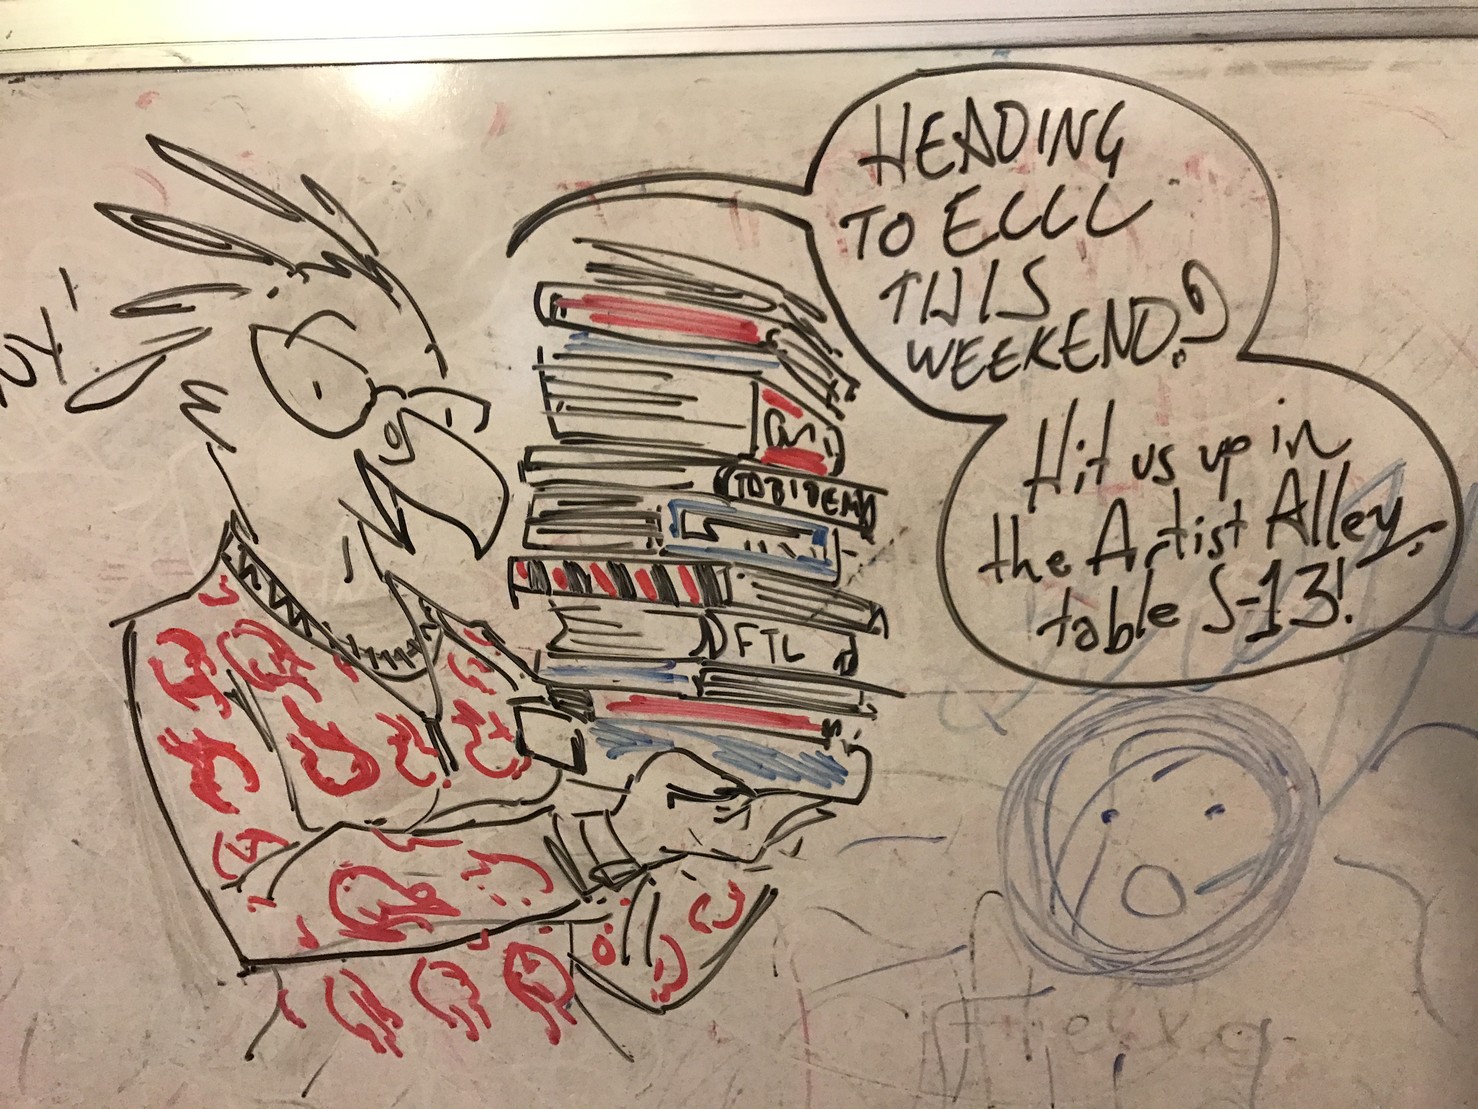 HEADING
TO ECCC
THIS
WEEKEND?
Hit us up in
the Artist Alley
table S-13!
FTL